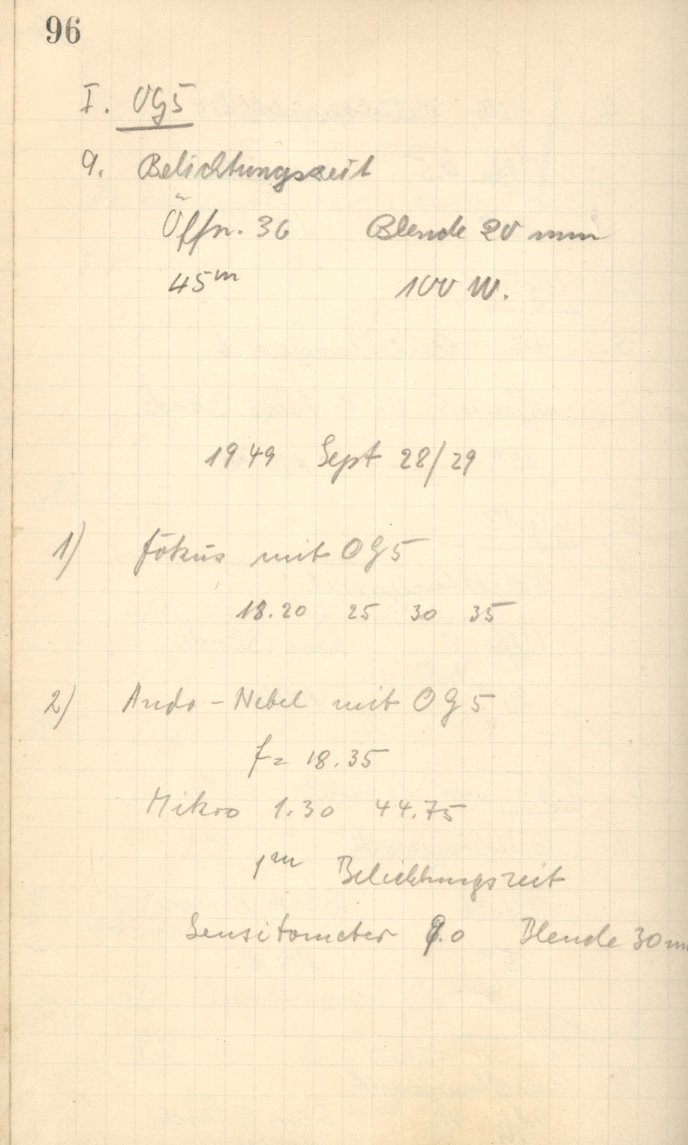 96
I. OG5
a. Belichtungszeit
Öffn. 36 Blende 20 mm
45m 100 W.
1949 Sept 28/29
1) Fokus mit OG5
18.20 25 30 35
2) Andr-Nebel mit OG5
f = 18.35
Mikro 1.30 44.75
1m Belichtungszeit
Sensitometer .0 Blende 30